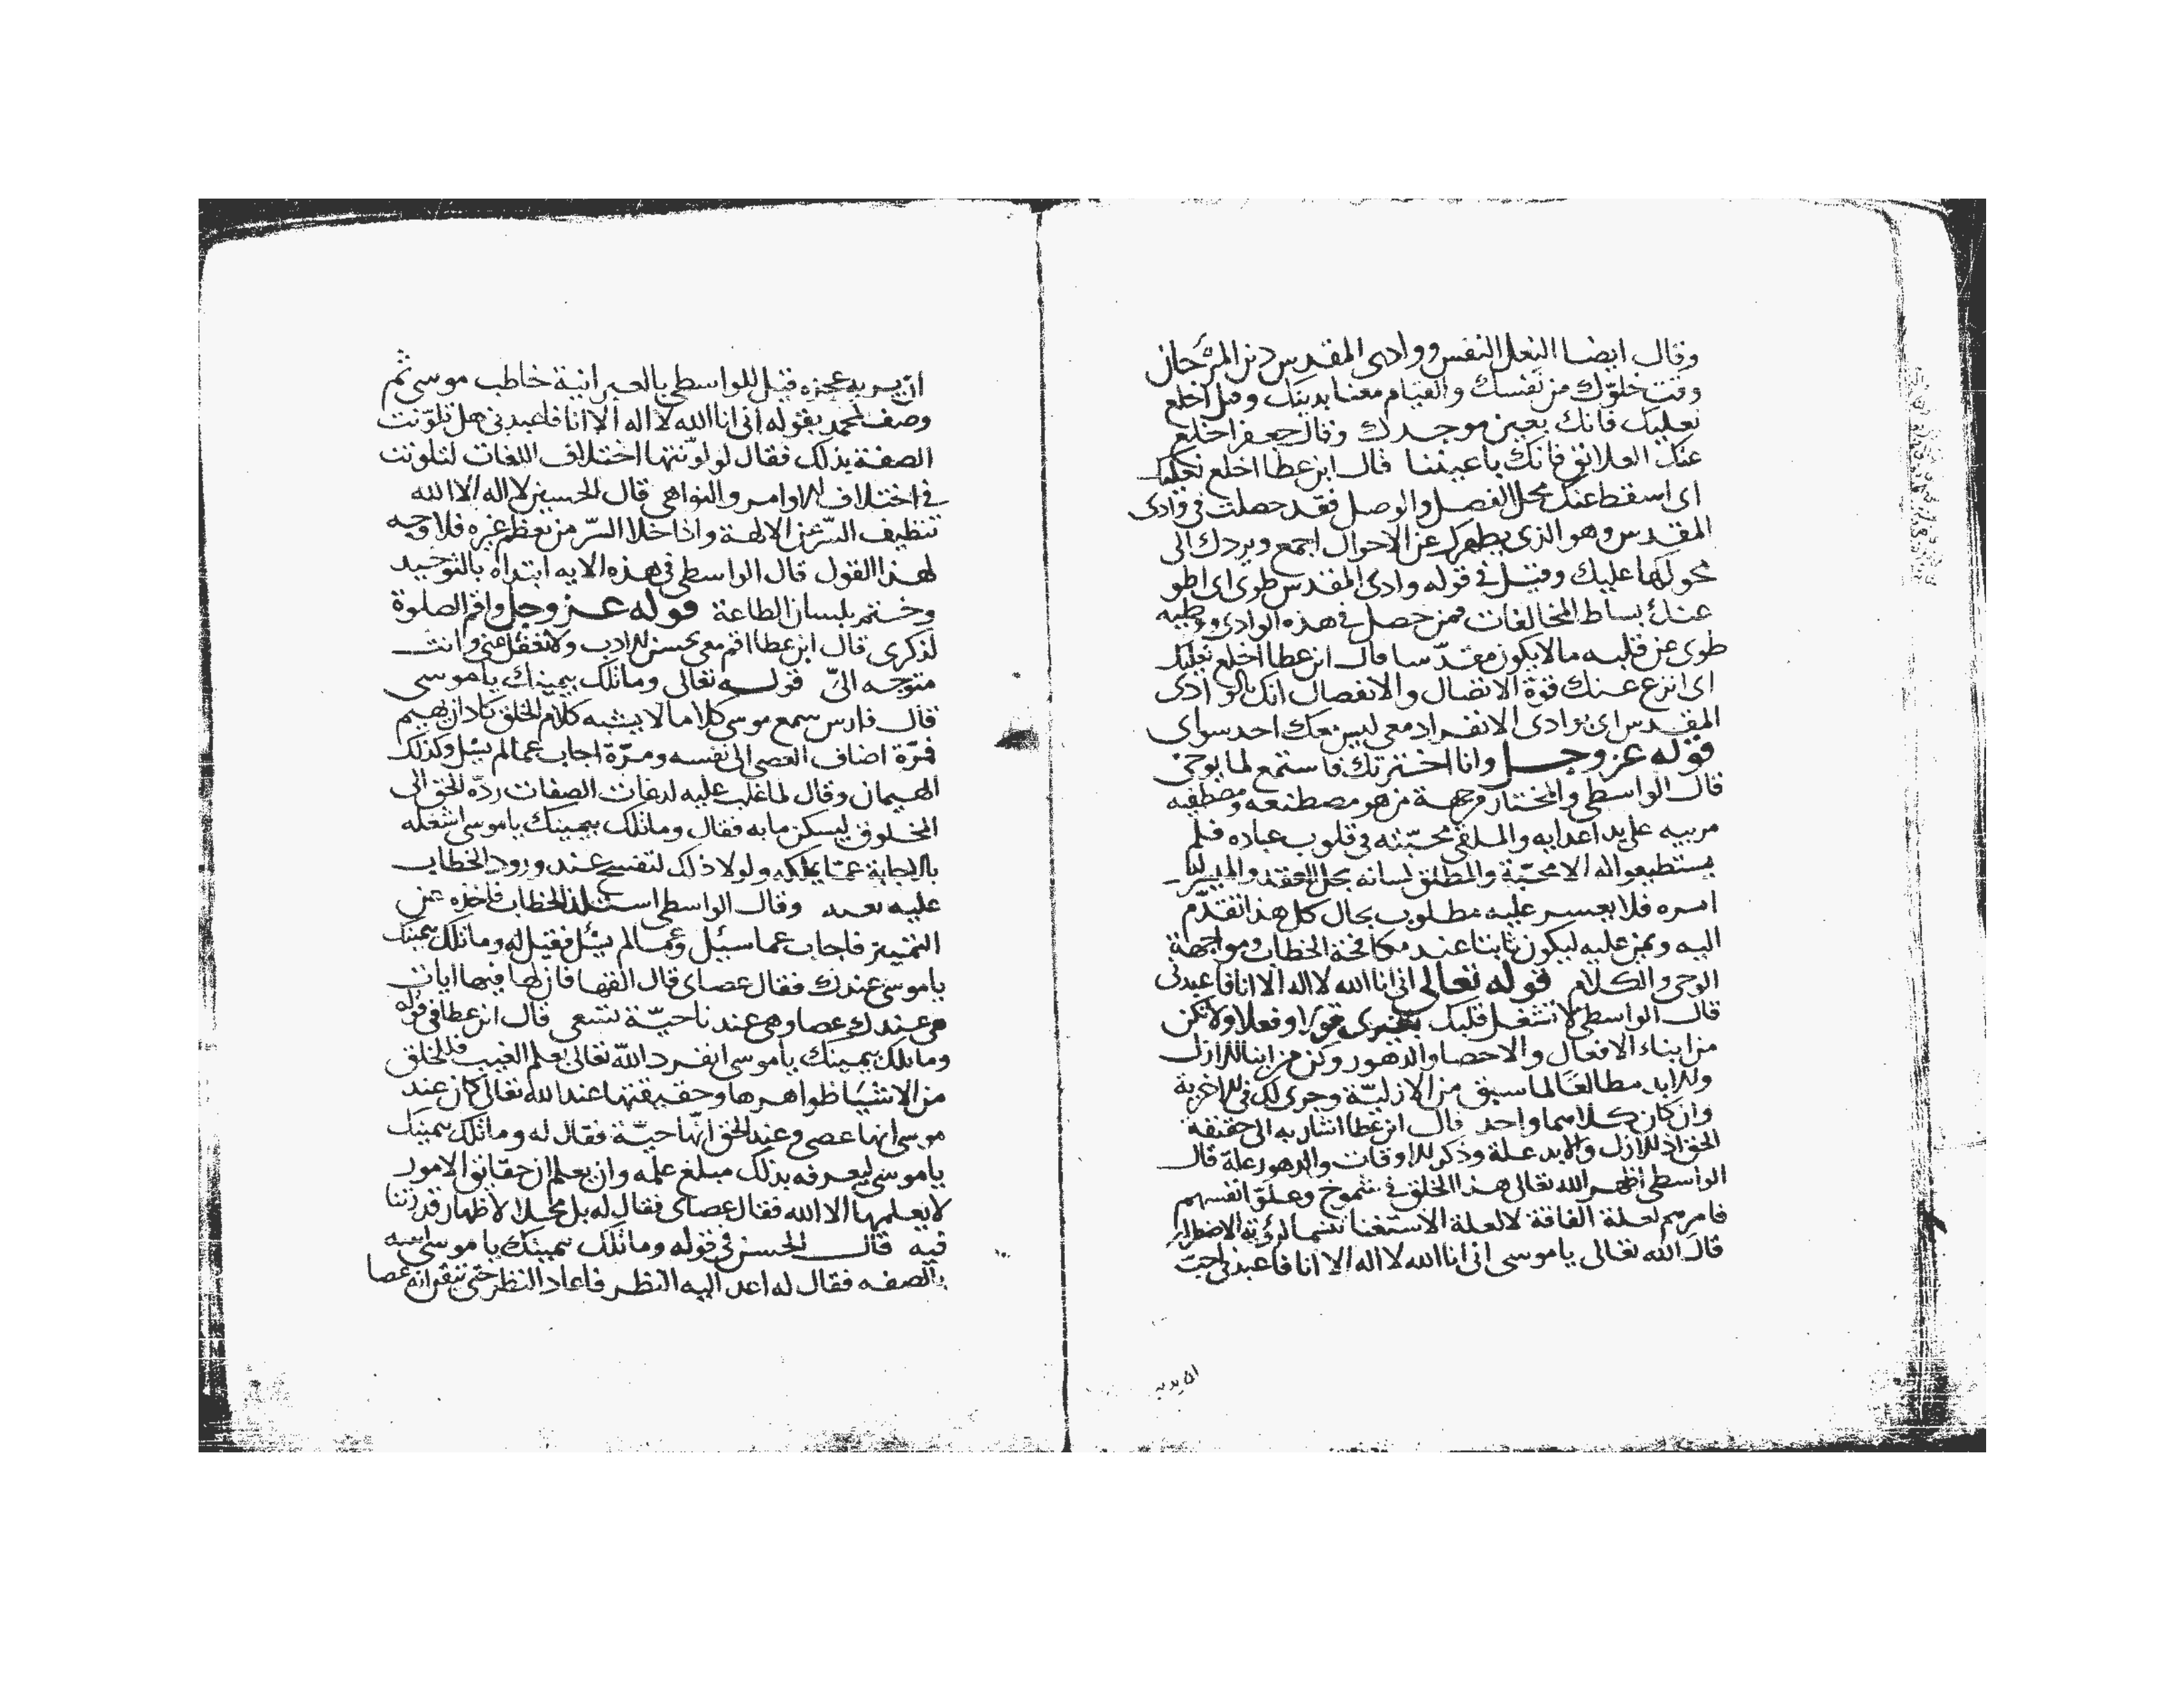 وقال ايضا النعل النفس ووادى المقدس دين المرء حان
وقت خلوّك من نفسك والقيام معنا بدينك وقيل اخلع
نعليك فانك بعين موجدك وقال جعفر اخلع
عنك العلائق فانك باعيننا قال ابن عطا اخلع نعليك
اى اسقط عنك محل الفصل والوصل فقد حصلت فى وادى
المقدس وهو الذى يطهرك عن الاحوال اجمع ويردك الى
محولها عليك وقيل فى قوله وادى المقدس طوى اى اطو
عنك بساط المخالفات فمن حصل فى هذه الوادى
طوى عن قلبه مالا يكون مقدّسا قال ابن عطا اخلع نعليك
اى انزع عنك قوة الاتصال والانفصال انك بالوادى
المقدس اى بوادى الانفراد معى ليس معك احد سواى
قوله عز وجل وانا اخترتك فاستمع لما يوحى
قال الواسطى والمختار من جهة من هو مصطنعه ومصطفيه
مربيه على يد اعدايه والملقى محبّته فى قلوب عباده فلم
يستطيعوا له الا محبّة والمطلق لسانه بحل العقد والميسر له
امره فلا يعسر عليه مطلوب بحال كل هذا تقدّم
اليه ويمن عليه ليكون ثابتا عند مكافحة الخطاب ومواجهة
الوحى والكلام قوله تعالى انى انا الله لا اله الا انا فاعبدنى
قال الواسطى لا تشغل قلبك بغيرى قولا وفعلا ولا تكن
من ابناء الافعال والاحصا والدهور وكن من ابنا الازل
والابد مطالعًا لما سبق من الازليّة وجرى لك فى الاخرية
وان كان كلاهما واحد قال ابن عطا اشار به الى حقيقة
الحق اذ الازل والابد علة وذكر الاوقات والدهور علة قال
الواسطى اظهر الله تعالى هذا الخلق فى شموخ وعلو انفسهم
فامرهم لعلة الفاقة لا لعلة الاستغنا تتميما لرؤية الاضطرار
قال الله تعالى يا موسى انى انا الله لا اله الا انا فاعبدنى احبّ
ان يريد
ان يريد عجزه قيل للواسطى بالعبرانية خاطب موسى ثم
وصف لمحمد بقوله انى انا الله لا اله الا انا فاعبدنى هل تلوّنت
الصفة بذلك فقال لو لوّنتها اختلاف اللغات لتلونت
فى اختلاف الاوامر والنواهى قال الحسين لا اله الا الله
تنظيف السّر عن الالهة واذا خلا السّر من تعظيم غيره فلا وجه
لهذا القول قال الواسطى فى هذه الايه ابتداه بالتوحيد
وختم بلسان الطاعة قوله عز وجل واقم الصلوة
لذكرى قال ابن عطا اقم معى بحسن الادب ولا تغفل عنى وانت
متوجه الىّ قوله تعالى وما تلك بيمينك يا موسى
قال فارس سمع موسى كلاما لا يشبه كلام الخلق كاد ان يهيم
فمرّة اضاف العصى الى نفسه ومرّة اجاب عما لم يسل وكذلك
الهيمان وقال لما غلب عليه لدغات الصفات ردّه الحق الى
المخلوق ليسكن ما به فقال وما تلك بيمينك يا موسى اشغله
بالاجابة عمّا يملكه ولولا ذلك لتفسخ عند ورود الخطاب
عليه بعد وقال الواسطى استلذ الخطاب فاخذه عن
التمييز فاجاب عما سئل وعما لم يسئل فقيل له وما تلك بيمينك
يا موسى عندك فقال عصاى قال القها فان لها فيها ايات
هى عندك عصا وهى عندنا حيّة تسعى قال ابن عطا فى قوله
وما تلك بيمينك يا موسى انفرد الله تعالى بعلم الغيب فللخلق
من الاشيا ظواهرها وحقيقتها عند الله تعالى كان عند
موسى انها عصى وعند الحق انّها حيّة فقال له وما تلك بيمينك
يا موسى ليعرفه بذلك مبلغ علمه وان يعلم ان حقايق الامور
لا يعلمها الا الله فقال عصاى فقال له بل محلا لاظهار قدرتنا
فيه قال الحسين فى قوله وما تلك بيمينك يا موسى
بالصفه فقال له اعد اليه النظر فاعاد النظر حتى تيقن انه عصا